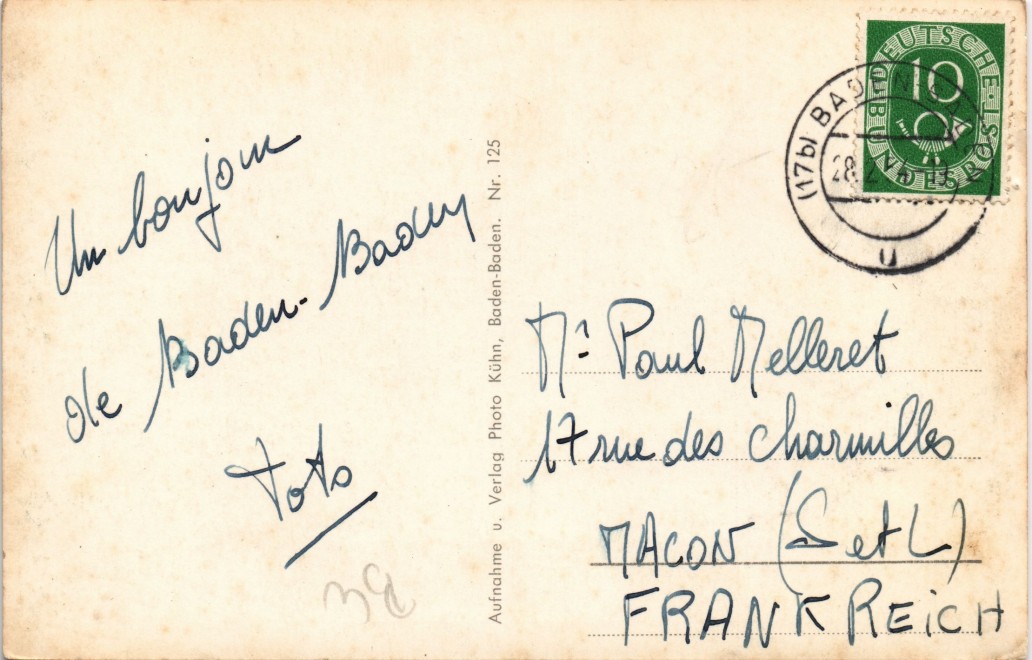 Un bonjour
de Baden-Baden
Toto
Aufnahme u. Verlag Photo Kühn, Baden-Baden. Nr. 125
DEUTSCHE BUNDESPOST
10
(17b) BADEN
28.
u
Mr Paul Melleret
17 rue des charmilles
MACON (S et L)
FRANKREiCH